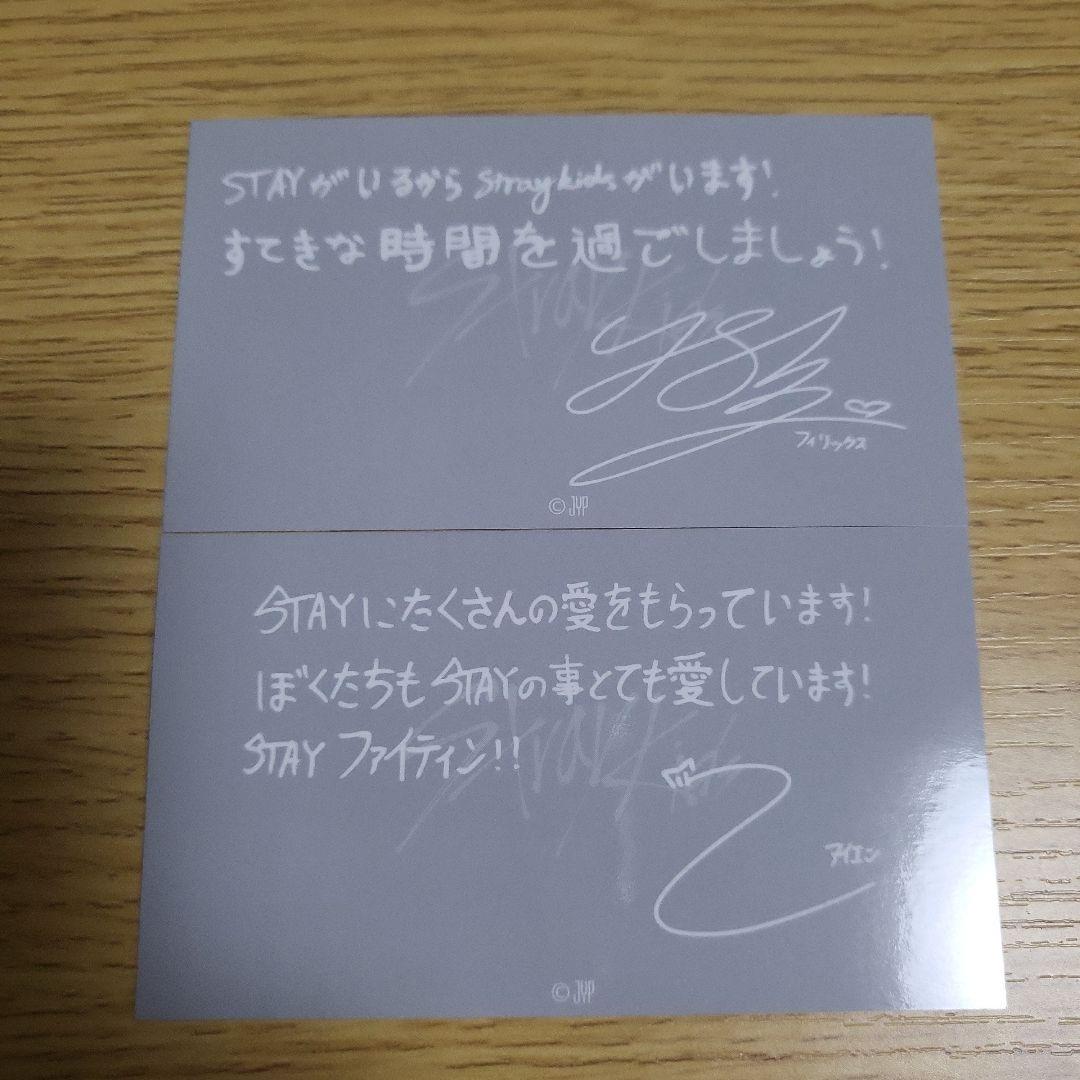 STAYがいるから Stray kidsがいます!
すてきな時間を過ごしましょう!
Stray Kids
フィリックス
© JYP
STAYにたくさんの愛をもらっています!
ぼくたちも STAYの事とても愛しています!
STAY ファイティン!!
Stray Kids
アイエン
© JYP